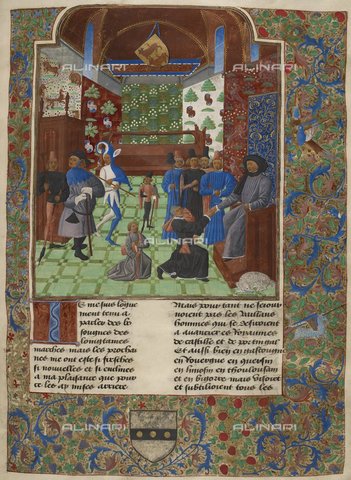 ALINARI
ALINARI
ALINARI
ALINARI
ALINARI
Je me suis longue
ment tenu a
parler des
loingtaines
marches mais les prochai
nes me ont este si fresches
si nouvelles et si enclines
a ma plaisance que pour
ce les ay mises arriere
Mais pour tant ne sejour
noient pas les vaillans
hommes qui se desiroient
a avancer es royaumes
de castille et de portingal
Et aussi bien en gascoingne
en Rouergue en quersin
en limosin en thoulousan
et en bigorre mais visoiet
et subtilioient tous les